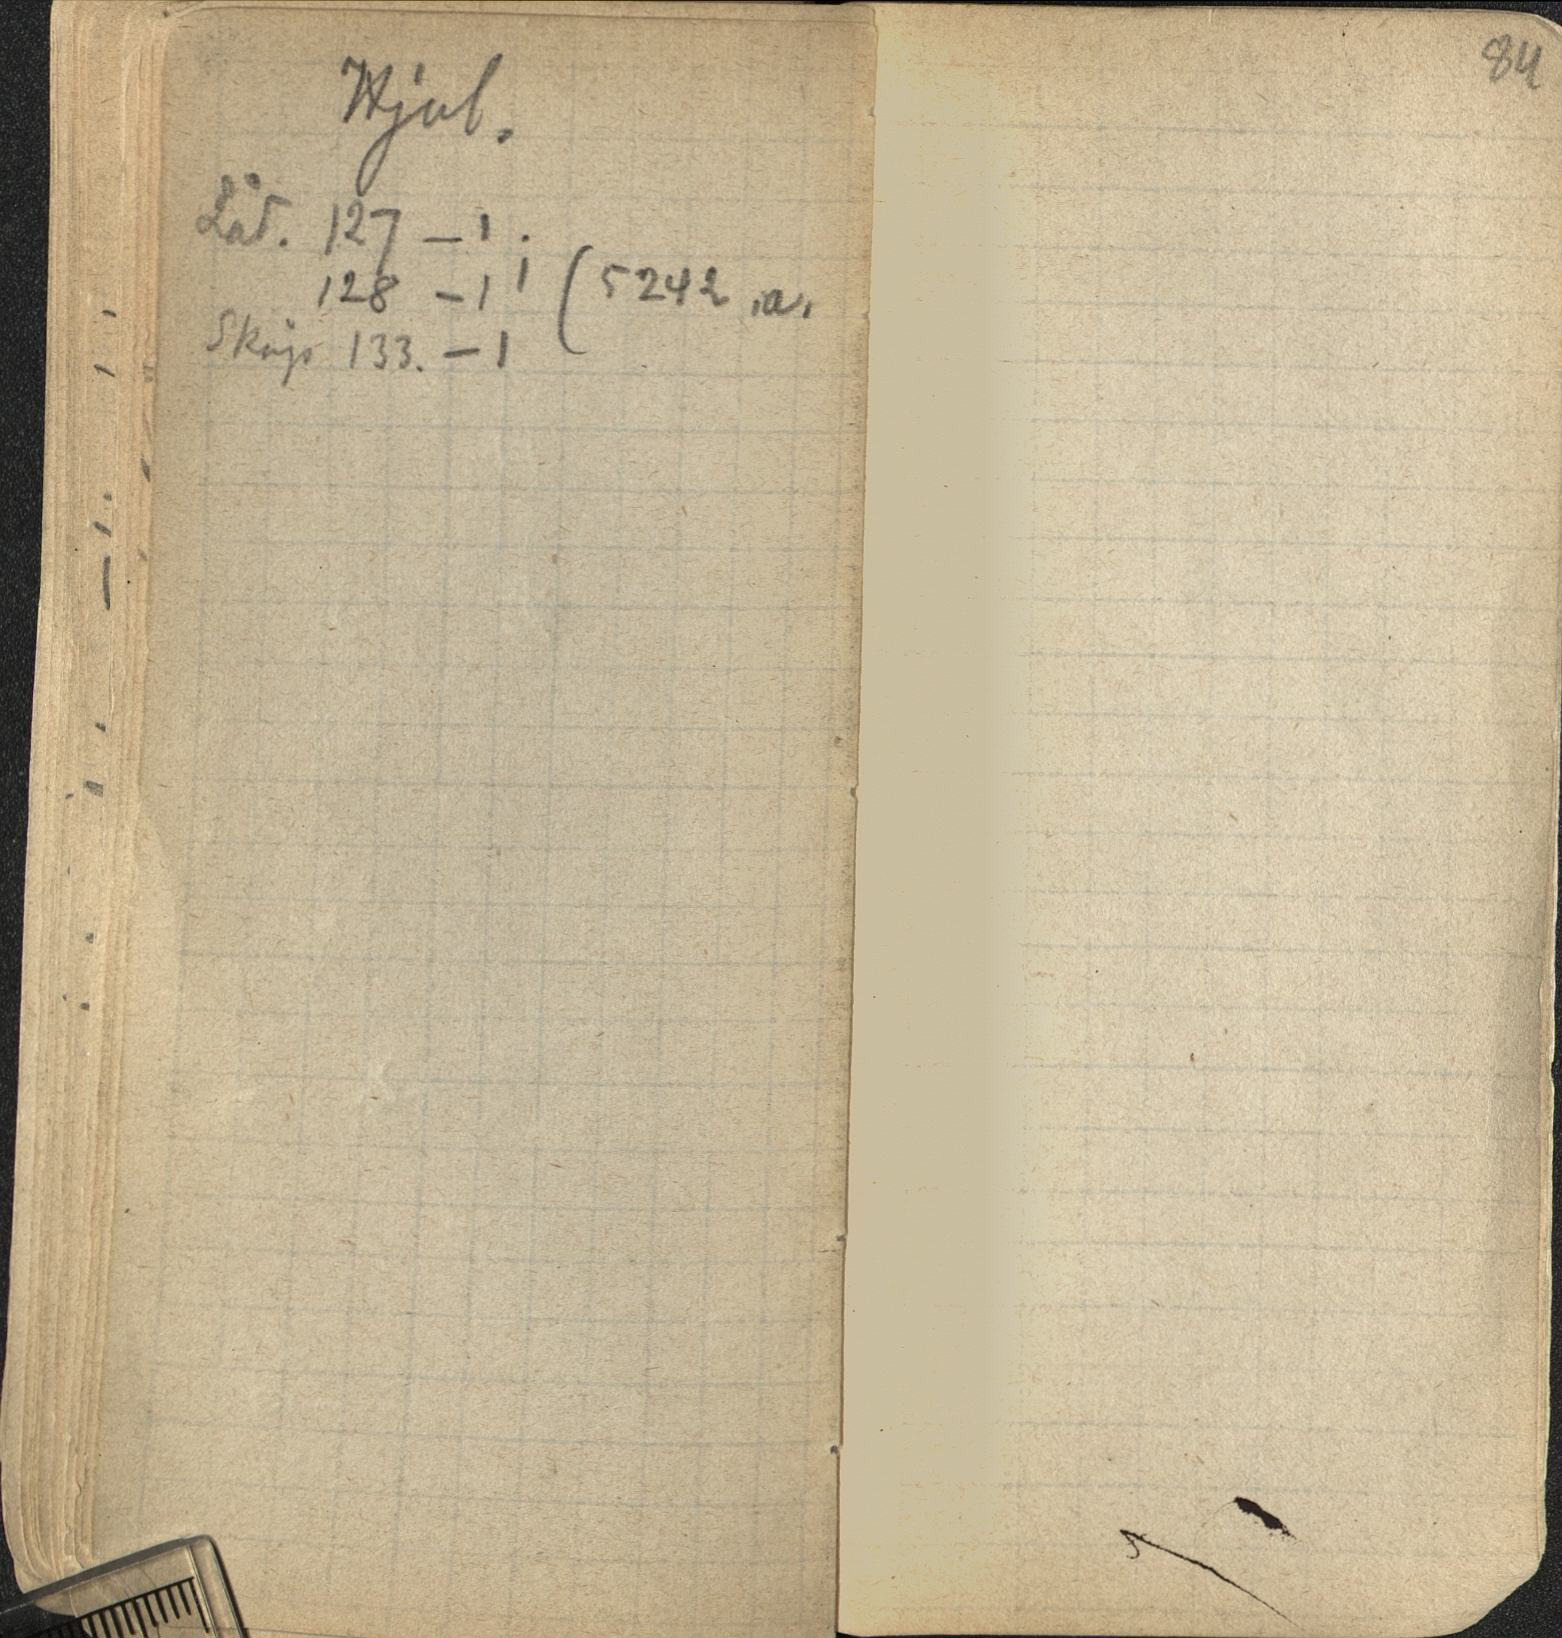 84
Hjul.
Låd. 127 – 1.
128 – 1 1 ( 5242 .a.
133. – 1